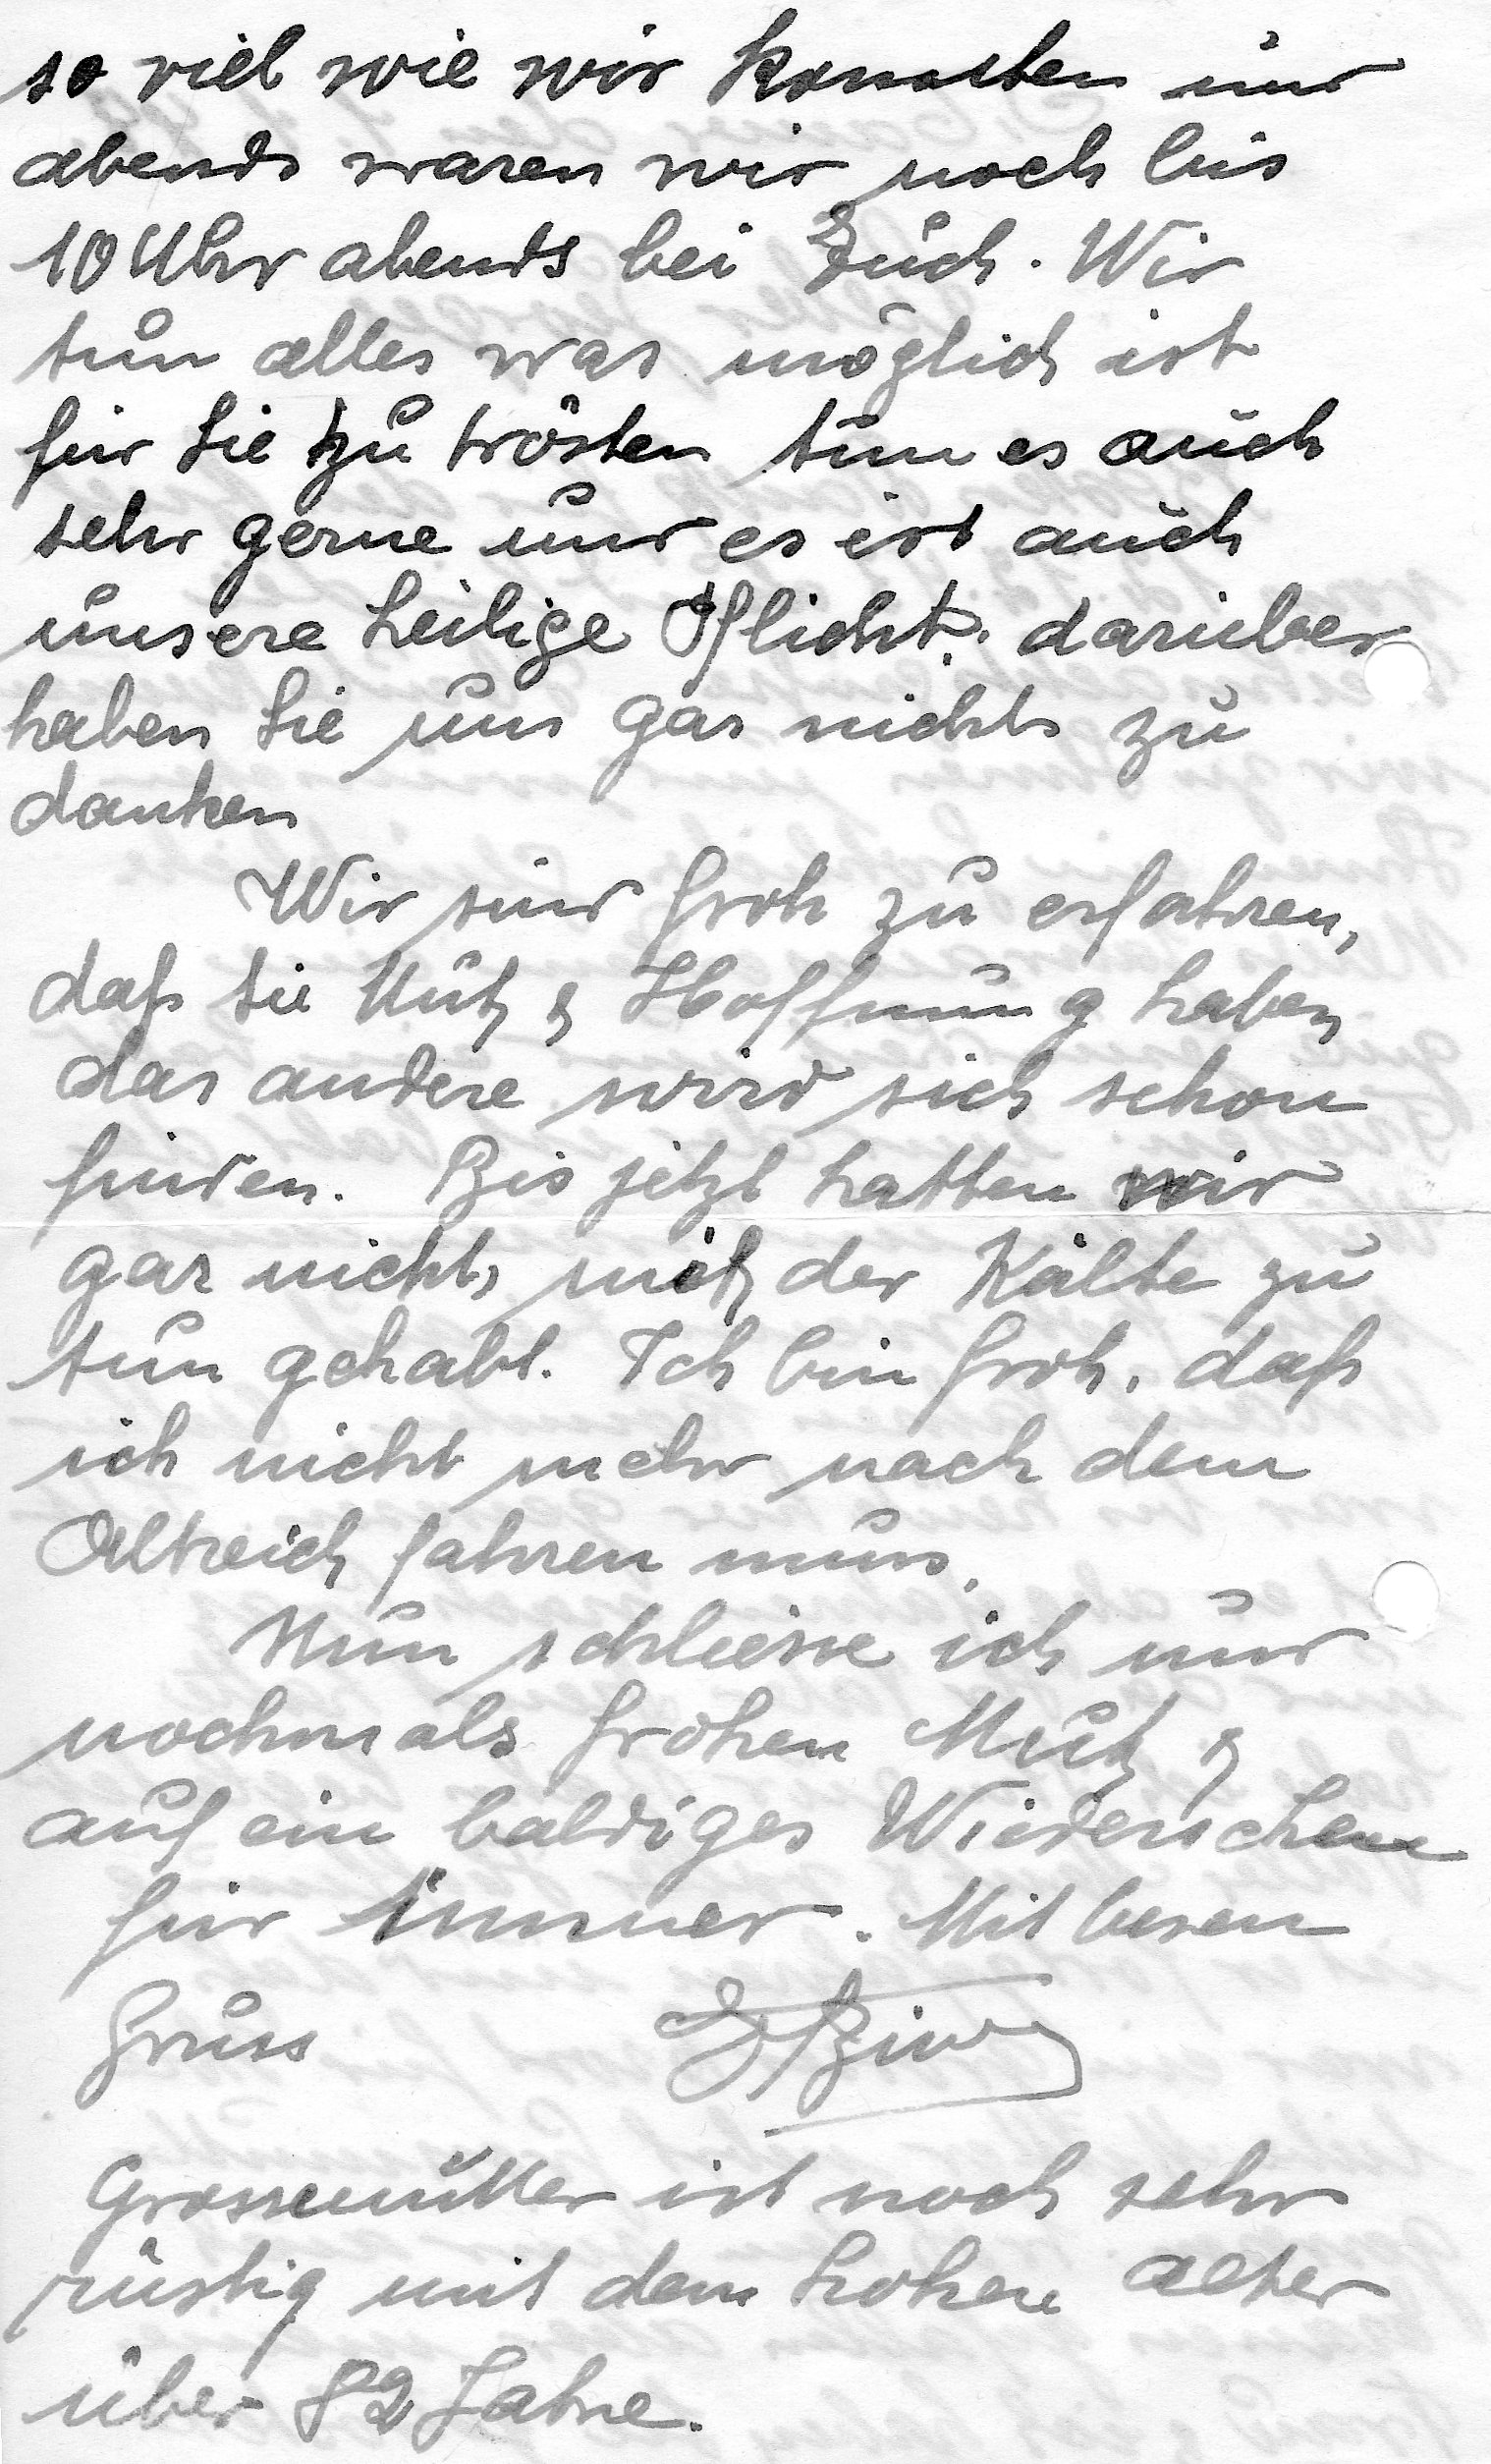 so viel wie wir konnten und
abends waren wir noch bis
10 Uhr abends bei Euch. Wir
tun alles was möglich ist
für Sie zu trösten tun es auch
sehr gerne und es ist auch
unsere heilige Pflicht. darüber
haben Sie uns gar nichts zu
danken
Wir sind froh zu erfahren,
daß Sie Mut & Hoffnung haben,
das andere wird sich schon
finden. Bis jetzt hatten wir
gar nichts mit der Kälte zu
tun gehabt. Ich bin froh, daß
ich nicht mehr nach dem
Altreich fahren muss.
Nun schliesse ich und
nochmals frohen Mut &
auf ein baldiges Wiedersehen
für immer. Mit besten
Gruss
Grossmutter ist noch sehr
rüstig mit dem hohen alter
über 82 Jahre.